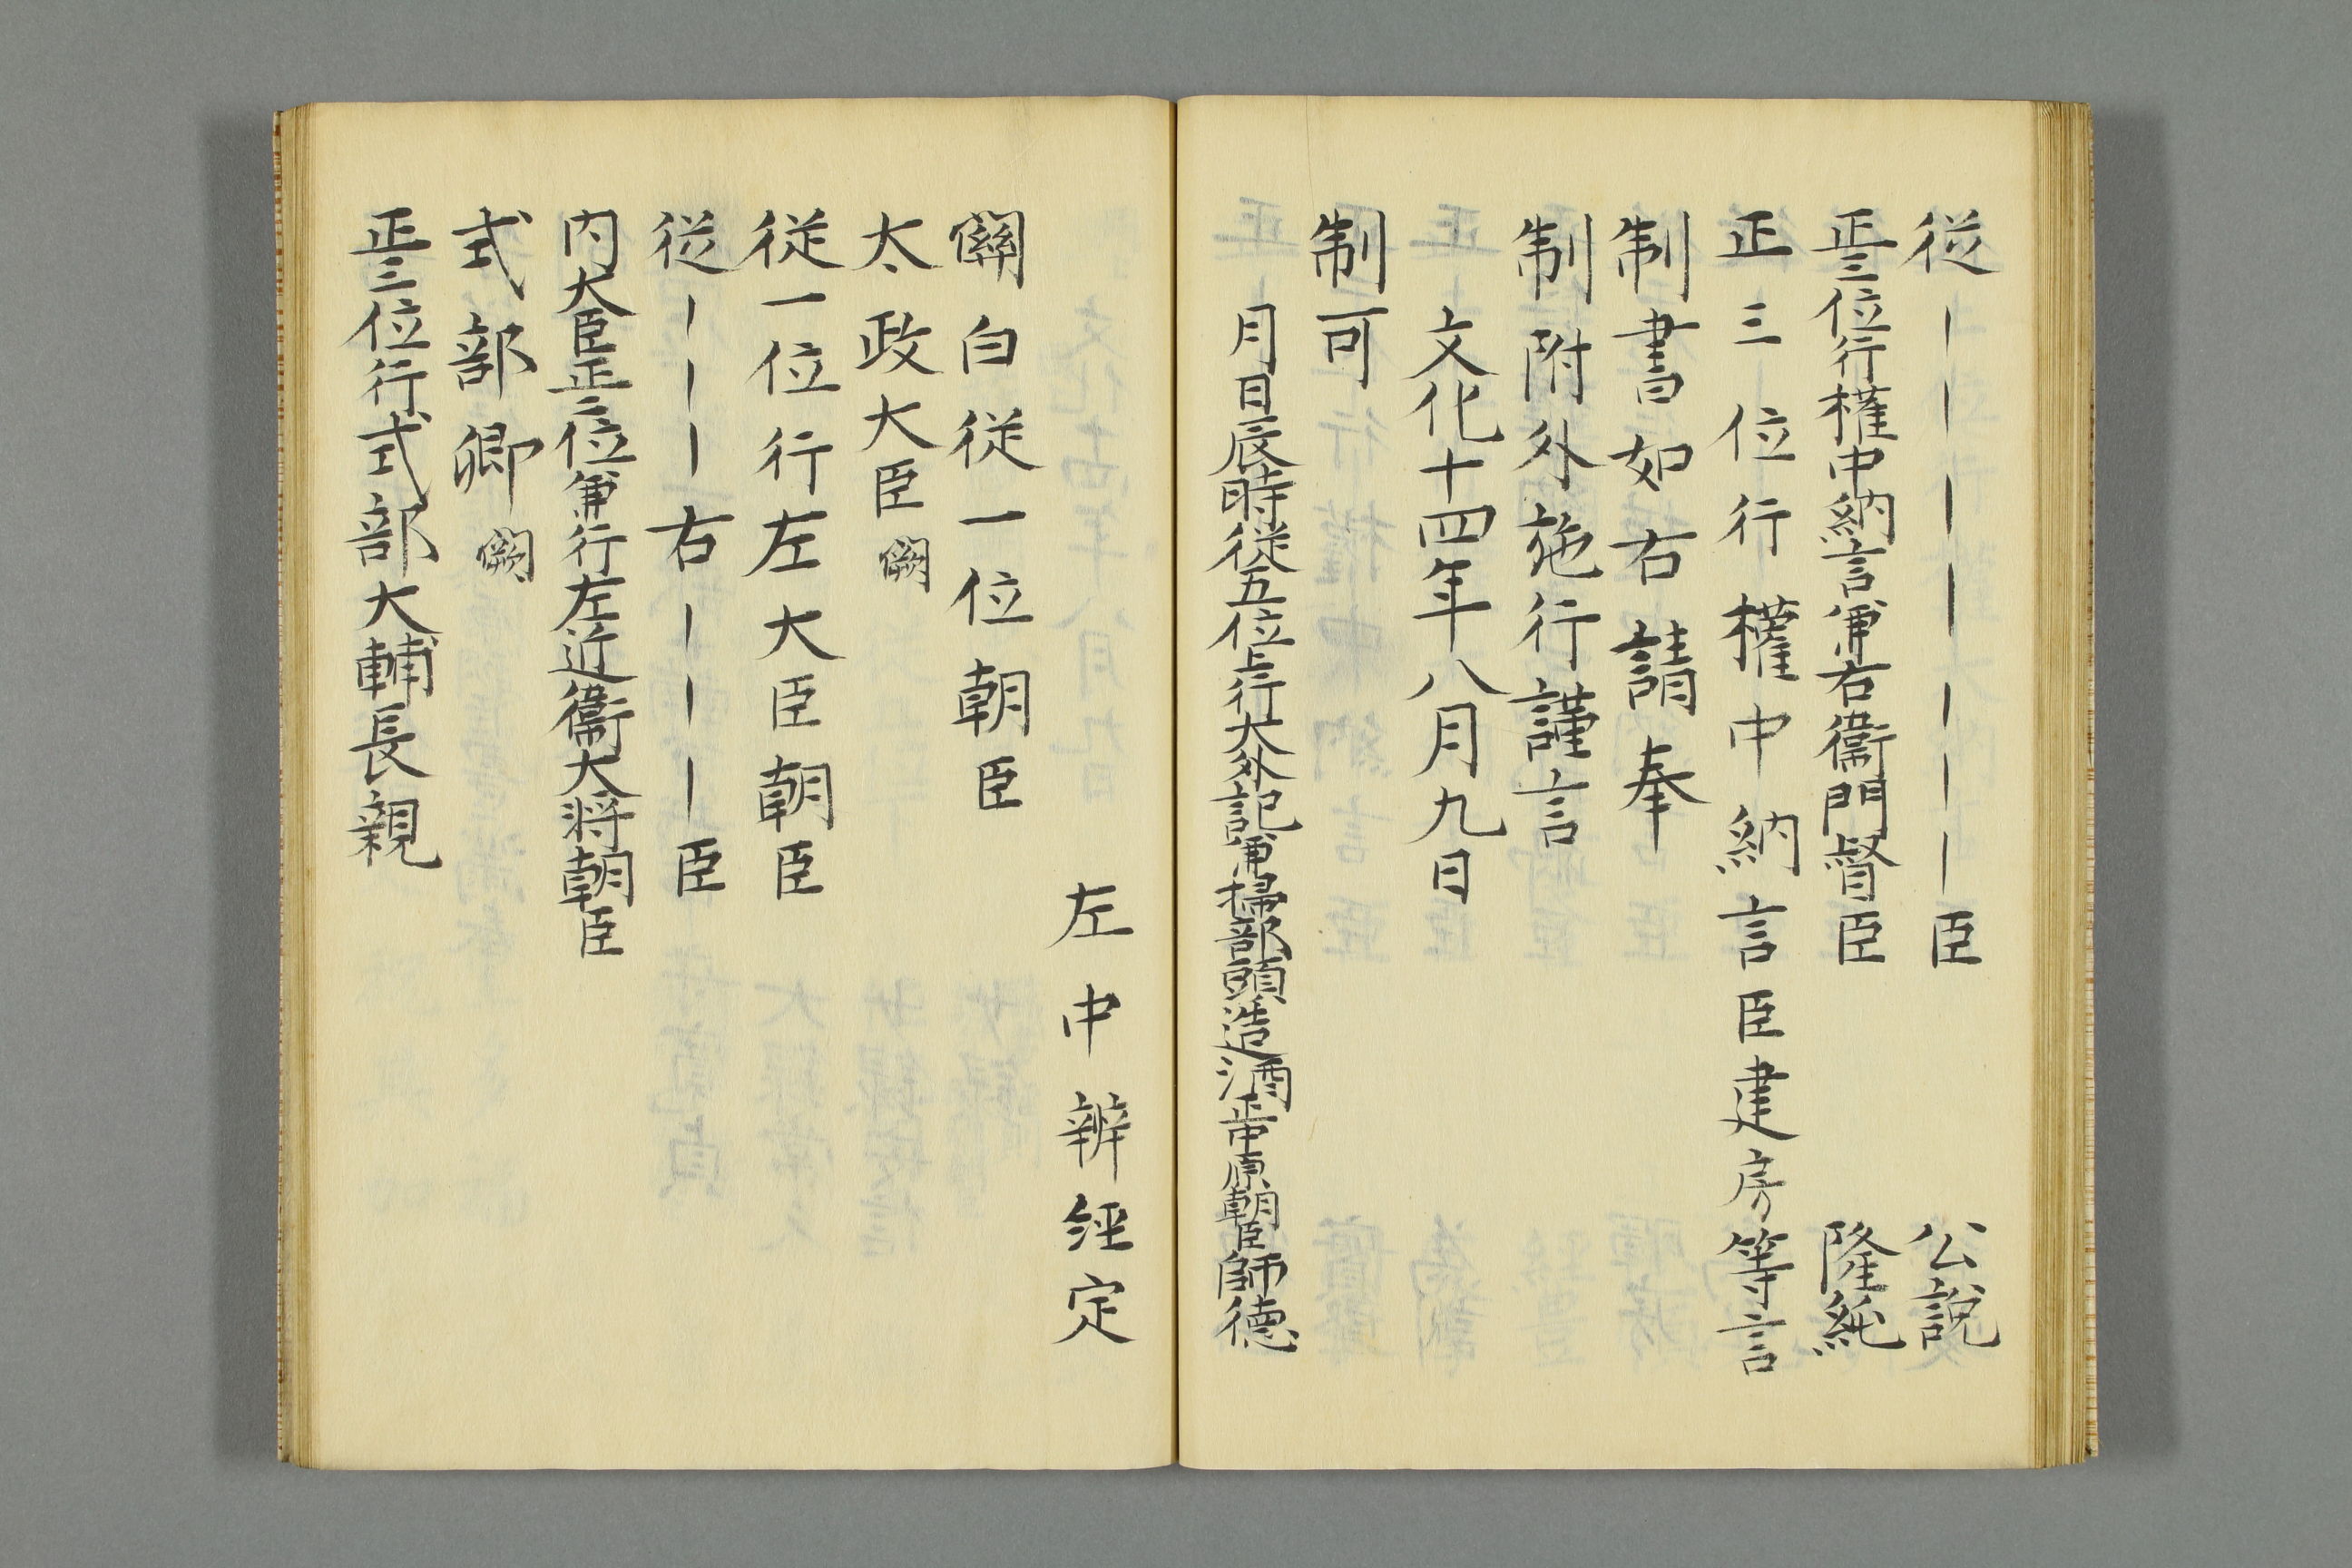 従――――――――臣 公説
正三位行權中納言兼右衞門督臣 隆純
正三位行權中納言臣建房等言
制書如右請奉
制附外施行謹言
文化十四年八月九日
制可
月日辰時従五位上行大外記兼掃部頭造酒正中原朝臣師徳
左中辨経定
關白従一位朝臣
太政大臣闕
従一位行左大臣朝臣
従―――右―――臣
内大臣正二位兼行左近衞大将朝臣
式部卿闕
正三位行式部大輔長親